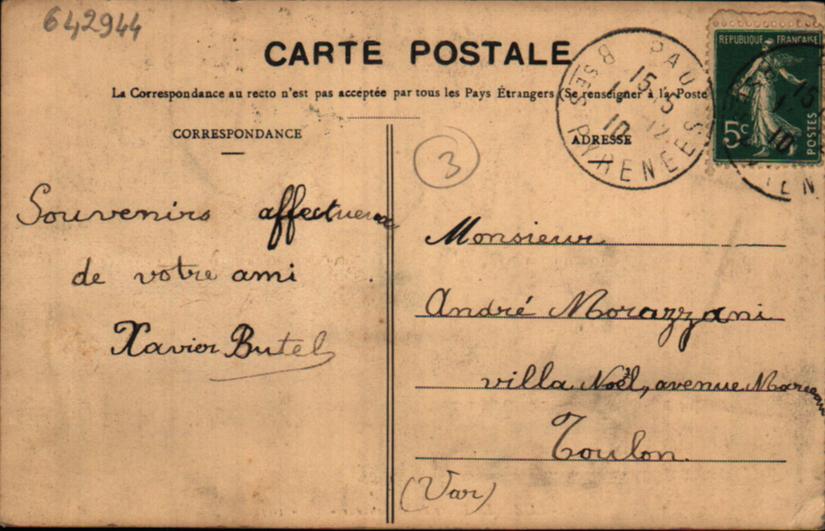 642944
CARTE POSTALE
La Correspondance au recto n'est pas acceptée par tous les Pays Étrangers (Se renseigner à la Poste
CORRESPONDANCE
ADRESSE
3
PAU
BSES PYRENEES
15-3
12
10
REPUBLIQUE FRANÇAISE
5c
POSTES
15
10
Souvenirs affectueux
de votre ami
Xavier Butel
Monsieur
André Morazzani
villa Noël, avenue Marceau
Toulon.
(Var)